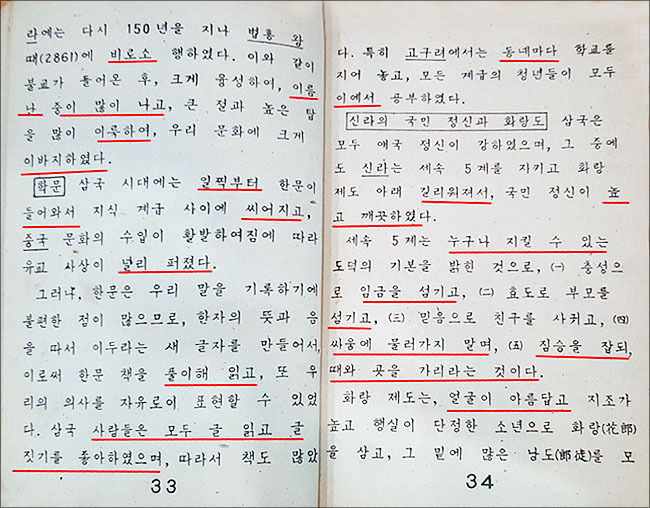 라에는 다시 150년을 지나 법흥 왕
때(2861)에 비로소 행하였다. 이와 같이
불교가 들어온 후, 크게 융성하여, 이름
난 중이 많이 나고, 큰 절과 높은 탑
을 많이 이룩하여, 우리 문화에 크게
이바지하였다.
학문 삼국 시대에는 일찍부터 한문이
들어와서 지식 계급 사이에 씨어지고,
중국 문화의 수입이 활발하여짐에 따라
유교 사상이 널리 퍼졌다.
그러나, 한문은 우리 말을 기록하기에
불편한 점이 많으므로, 한자의 뜻과 음
을 따서 이두라는 새 글자를 만들어서,
이로써 한문 책을 풀이해 읽고, 또 우
리의 의사를 자유로이 표현할 수 있었
다. 삼국 사람들은 모두 글 읽고 글
짓기를 좋아하였으며, 따라서 책도 많았
33
다. 특히 고구려에서는 동네마다 학교를
지어 놓고, 모든 계급의 청년들이 모두
이에서 공부하였다.
신라의 국민 정신과 화랑도 삼국은
모두 애국 정신이 강하였으며, 그 중에
도 신라는 세속 5계를 자키고 화랑
제도 아래 길리워져서, 국민 정신이 높
고 깨끗하였다.
세속 5계는 누구나 지킬 수 있는
도덕의 기본을 밝힌 것으로, ㈠ 충성으
로 임금을 섬기고, ㈡ 효도로 부모를
섬기고, ㈢ 믿음으로 친구를 사귀고, ㈣
싸움에 물러가지 말며, ㈤ 짐승을 잡되,
때와 곳을 가리라는 것이다.
화랑 제도는, 얼굴이 아름답고 지조가
높고 행실이 단정한 소년으로 화랑(花郎)
을 삼고, 그 밑에 많은 낭도(郎徒)를 모
34